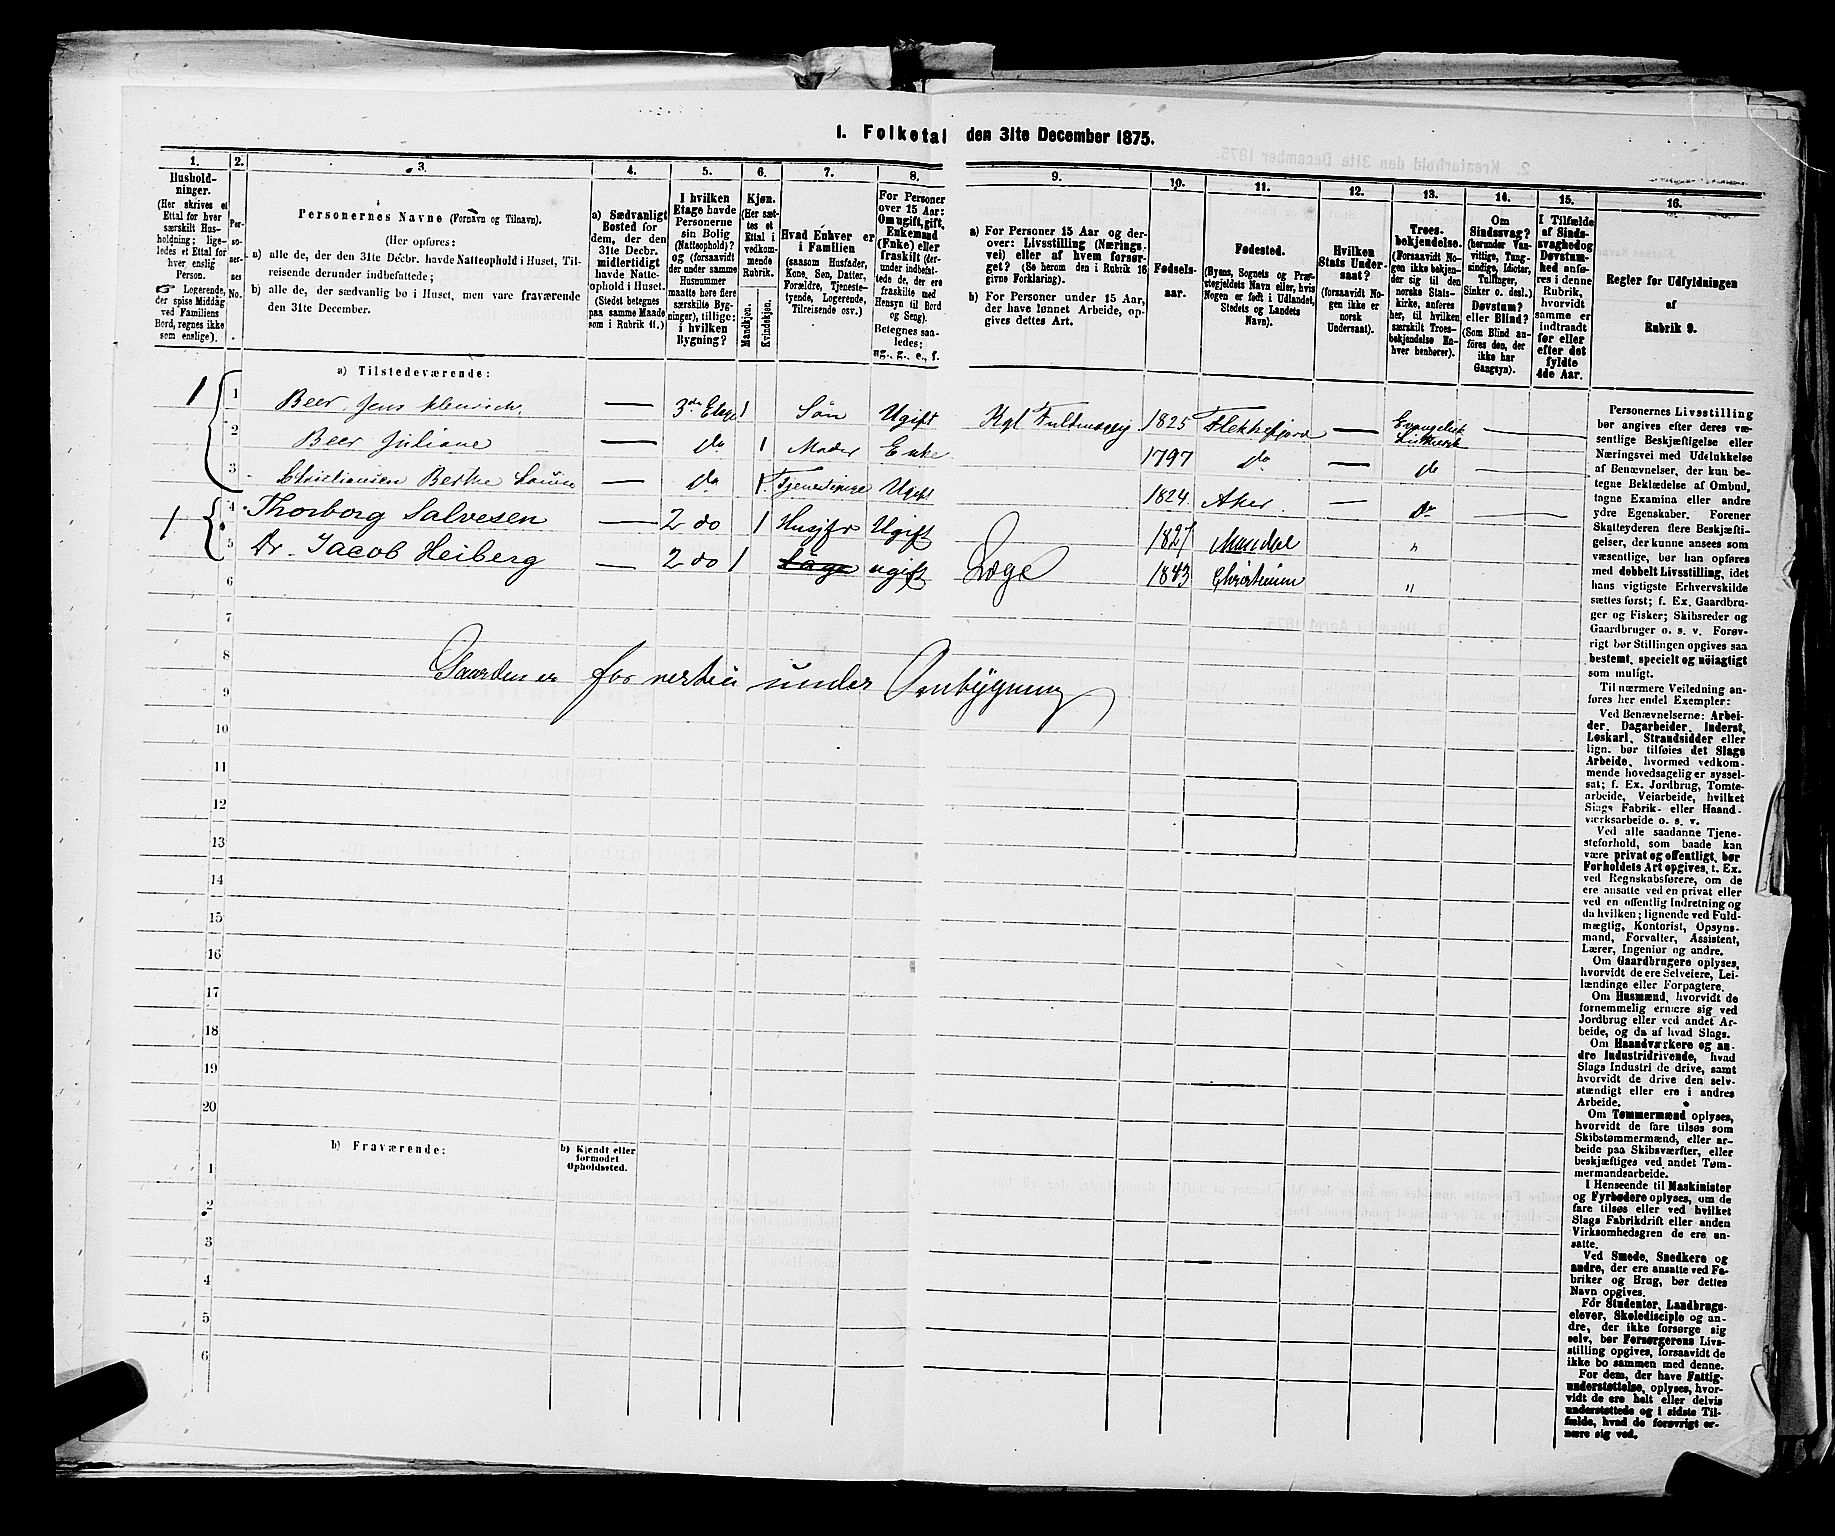 1. Folketal den 31te December 1875.
1. 2. 3. 4. 5. 6. 7. 8. 9. 10. 11. 12. 13. 14. 15. 16.
Hushold-
ninger.
(Her skrives et
Ettal for hver
særskilt Hus-
holdning; lige-
ledes et Ettal for
hver enslig
Person.
Logerende,
der spise Middag
ved Familiens
Bord, regnes ikke
som enslige).
Per-
so-
ner-
nes
No.
Personernes Navne (Fornavn og Tilnavn).
(Her opføres:
a) alle de, der den 31te Decbr. havde Natteophold i Huset, Til-
reisende derunder indbefattede;
b) alle de, der sædvanlig bo i Huset, men vare fraværende
den 31te December.
a) Sædvanligt
Bosted for
dem, der den
31te Decbr.
midlertidigt
havde Natte-
ophold i Huset.
(Stedet betegnes
paa samme Maade
som i Rubrik 11.)
I hvilken
Etage havde
Personerne
sin Bolig
(Natteophold)?
og (forsaavidt
der under samme
Husnummer
maatte høre flere
særskilte Byg-
ninger), tillige:
i hvilken
Bygning?
Kjøn.
(Her sæt-
tes et
Ettal i
vedkom-
mende
Rubrik.
Mandkjøn.
Kvindekjøn.
Hvad Enhver er
i Familien
(saasom Husfader,
Kone, Søn, Datter,
Forældre, Tjeneste-
tyende, Logerende,
Tilreisende osv.)
For Personer
over 15 Aar:
Om ugift, gift,
Enkemand
(Enke) eller
fraskilt (der-
under indbefat-
tede de, der ere
fraskilte med
Hensyn til Bord
og Seng).
Betegnes saa-
ledes:
ug., g., e., f.
a) For Personer 15 Aar og der-
over: Livsstilling (Nærings-
vei) eller af hvem forsør-
get? (Se herom den i Rubrik 16
givne Forklaring).
b) For Personer under 15 Aar,
der have lønnet Arbeide, op-
gives dettes Art.
Fødsels-
aar.
Fødested.
(Byens, Sognets og Præ-
stegjeldets Navn eller, hvis
Nogen er født i Udlandet,
Stedets og Landets
Navn).
Hvilken
Stats Under-
saat?
(forsaavidt No-
gen ikke er
norsk
Undersaat).
Troes-
bekjendelse.
(Forsaavidt No-
gen ikke bekjen-
der sig til den
norske Stats-
kirke, anføres
her, til hvilken
særskilt Troes-
bekjendelse En-
hver henhører).
Om
Sindssvag?
(herunder Van-
vittige, Tung-
sindige, Idioter,
Tullinger,
Sinker o. desl.).
Døvstum?
eller Blind?
(Som Blind an-
føres den, der
ikke har
Gangsyn).
I Tilfælde
af Sinds-
svaghed og
Døvstum-
hed anfø-
res i denne
Rubrik,
hvorvidt
samme er
indtraadt
før eller
efter det
fyldte
4de Aar.
Regler for Udfyldningen
af
Rubrik 9.
a) Tilstedeværende:
1 1 Beer, Jens Henrich — 3de Etage 1 Søn Ugift Kgl Fuldmægtig 1825 Flekkefjord — Evangelisk Luthersk —
2 Beer Juliane — do 1 Moder Enke 1797 do — do —
3 Christiansen Berthe — do 1 Ugift 1824 Aker — Do —
1 4 Thorborg Salvesen — 2 do 1 Husjfr Ugift 1827 Mandal "
5 Dr. Jacob Heiberg — 2 do 1 Læge ugift Læge 1843 Christiania "
6
7
8
Gaarden er for resten under Ombygning
9
10
11
12
13
14
15
16
17
18
19
20
b) Fraværende:
b) Kjendt eller
formodet
Opholdssted.
1
2
3
4
5
6
Personernes Livsstilling
bør angives efter deres væ-
sentlige Beskjæftigelse eller
Næringsvei med Udelukkelse
af Benævnelser, der kun be-
tegne Beklædelse af Ombud,
tagne Examina eller andre
ydre Egenskaber. Forener
Skatteyderen flere Beskjæfti-
gelser, der kunne ansees som
væsentlige, bør han opføres
med dobbelt Livsstilling, idet
hans vigtigste Erhvervskilde
sættes først; f. Ex. Gaardbru-
ger og Fisker; Skibsreder og
Gaardbruger o. s. v. Forøv-
rigt bør Stillingen opgives saa
bestemt, specielt og nøiagtigt
som muligt.
Til nærmere Veiledning an-
føres her endel Exempler:
Ved Benævnelserne: Arbei-
der, Dagarbeider, Inderst,
Løskarl, Strandsidder eller
lign. bør tilføies det Slags
Arbeide, hvormed vedkom-
mende hovedsagelig er syssel-
sat; f. Ex. Jordbrug, Tomte-
arbeide, Veiarbeide, hvilket
Slags Fabrik- eller Haand-
værksarbeide o. s. v.
Ved alle saadanne Tjene-
steforhold, som baade kan
være privat og offentligt, bør
Forholdets Art opgives, t. Ex.
ved Regnskabsførere, om de
ere ansatte ved en privat eller
ved en offentlig Indretning og
da hvilken; lignende ved Fuld-
mægtig, Kontorist, Opsyns-
mand, Forvalter, Assistent,
Lærer, Ingeniør og andre.
Om Gaardbrugere oplyses,
hvorvidt de ere Selveiere, Lei-
lændinge eller Forpagtere.
Om Husmænd, hvorvidt de
fornemmelig ernære sig ved
Jordbrug eller ved andet Ar-
beide, og da af hvad Slags.
Om Haandværkere og an-
dre Industridrivende, hvad
Slags Industri de drive, samt
hvorvidt de drive den selv-
stændigt eller ere i andres
Arbeide.
Om Tømmermænd oplyses,
hvorvidt de fare tilsøs som
Skibstømmermænd, eller ar-
beide paa Skibsværfter, eller
beskjæftiges ved andet Tøm-
mermandsarbeide.
I Henseende til Maskinister
og Fyrbødere oplyses, om de
fare tilsøs eller ved hvilket
Slags Fabrikdrift eller anden
Virksomhedsgren de ere an-
satte.
Ved Smede, Snedkere og
andre, der ere ansatte ved Fa-
briker og Brug, bør dettes
Navn opgives.
For Studenter, Landbrugs-
elever, Skoledisciple og an-
dre, der ikke forsørge sig
selv, bør Forsørgerens Livs-
stilling opgives, forsaavidt de
ikke bo sammen med denne.
For dem, der have Fattig-
understøttelse, oplyses, hvor-
vidt de ere helt eller delvis
understøttede og i sidste Til-
fælde, hvad de forøvrigt er-
nære sig ved.